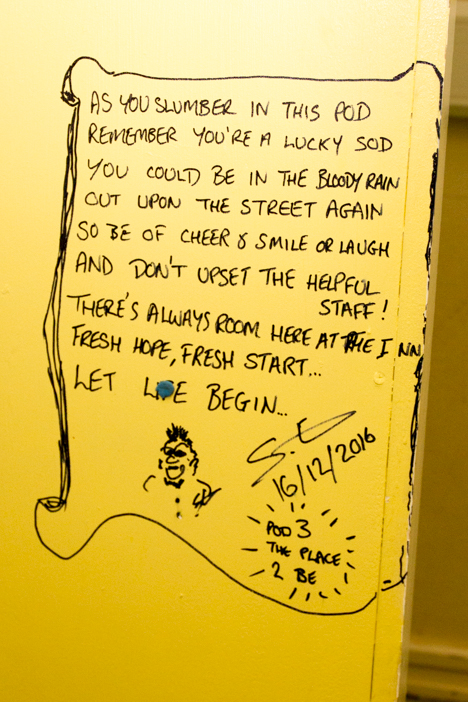 AS YOU SLUMBER IN THIS POD
REMEMBER YOU'RE A LUCKY SOD
YOU COULD BE IN THE BLOODY RAIN
OUT UPON THE STREET AGAIN
SO BE OF CHEER & SMILE OR LAUGH
AND DON'T UPSET THE HELPFUL
STAFF!
THERE'S ALWAYS ROOM HERE AT THE INN
FRESH HOPE, FRESH START...
LET BEGIN...
S.E
16/12/2016
POD 3
THE PLACE
2 BE